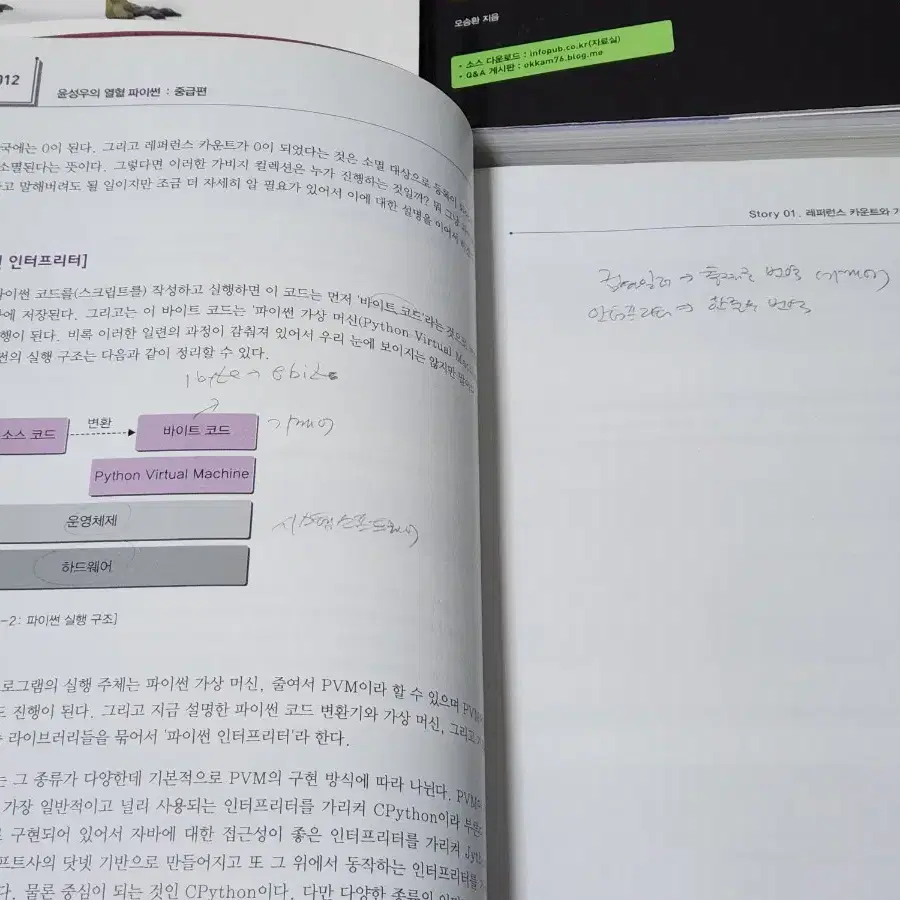 오승환 지음
• 소스 다운로드 : infopub.co.kr(자료실)
• Q&A 게시판 : okkam76.blog.me
012
윤성우의 열혈 파이썬 : 중급편
국에는 0이 된다. 그리고 레퍼런스 카운트가 0이 되었다는 것은 소멸 대상으로 등록이
소멸된다는 뜻이다. 그렇다면 이러한 가비지 컬렉션은 누가 진행하는 것일까? 뭐 그냥
고 말해버려도 될 일이지만 조금 더 자세히 알 필요가 있어서 이에 대한 설명을 이어서
인터프리터]
파이썬 코드를(스크립트를) 작성하고 실행하면 이 코드는 먼저 '바이트 코드'라는 것으로
에 저장된다. 그리고는 이 바이트 코드는 '파이썬 가상 머신(Python Virtual Machin
행이 된다. 비록 이러한 일련의 과정이 감춰져 있어서 우리 눈에 보이지는 않지만
썬의 실행 구조는 다음과 같이 정리할 수 있다.
1byte → 8bit
소스 코드
변환
바이트 코드
기계어
Python Virtual Machine
운영체제
시스템 소프트웨어
하드웨어
-2: 파이썬 실행 구조]
로그램의 실행 주체는 파이썬 가상 머신, 줄여서 PVM이라 할 수 있으며 PVM
도 진행이 된다. 그리고 지금 설명한 파이썬 코드 변환기와 가상 머신, 그리고
라이브러리들을 묶어서 '파이썬 인터프리터'라 한다.
는 그 종류가 다양한데 기본적으로 PVM의 구현 방식에 따라 나뉜다. PVM
가장 일반적이고 널리 사용되는 인터프리터를 가리켜 CPython이라
구현되어 있어서 자바에 대한 접근성이 좋은 인터프리터를 가리켜
프트사의 닷넷 기반으로 만들어지고 또 그 위에서 동작하는 인터프리터를
다. 물론 중심이 되는 것인 CPython이다. 다만 다양한 종류의
Story 01. 레퍼런스 카운트와
컴파일러 → 통째로 번역 (기계어)
인터프리터 → 한줄씩 번역